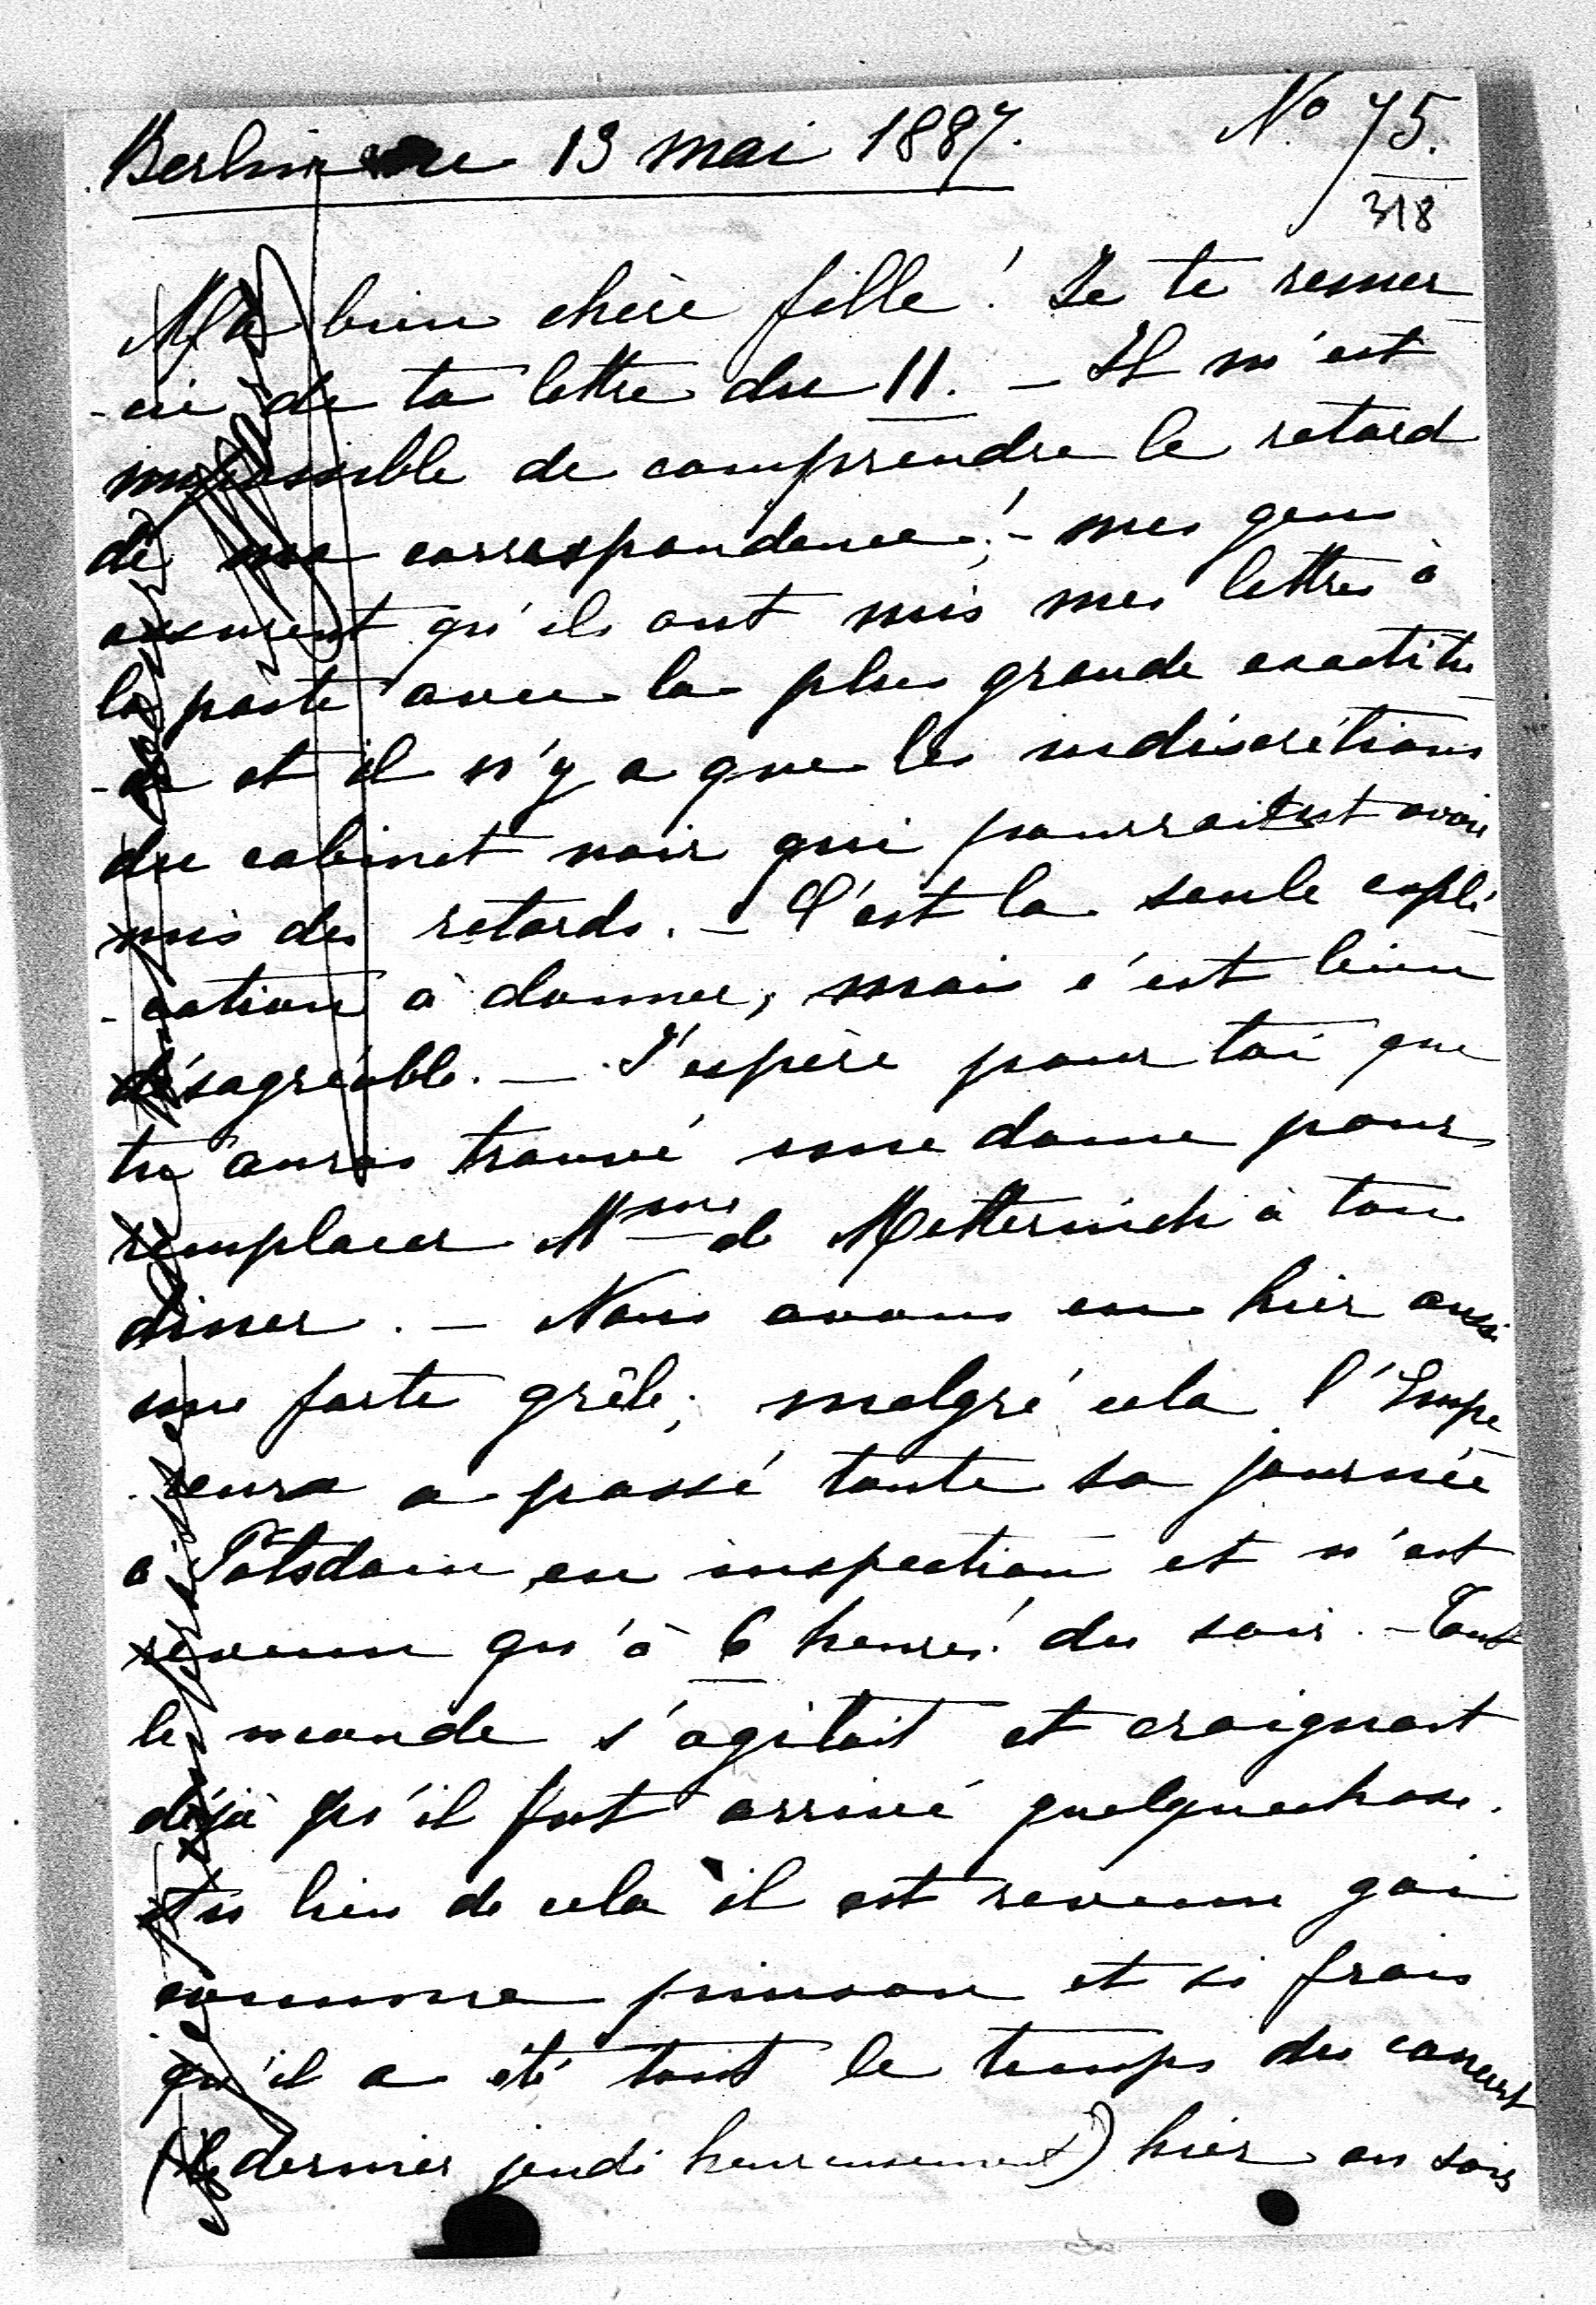 Berlin ce 13 mai 1887. No 75.
318
Ma bien chère fille! Je te remer
-cie de ta lettre du 11. - Il m'est
impossible de comprendre le retard
de ma correspondance; - mes gens
assurent qu'ils ont mis mes lettres à
la poste avec la plus grande exactitu
-de et il n'y a que les indiscrétions
du cabinet noir qui pourraient avoir
mis des retards. - C'est la seule expli
-cation à donner, mais c'est bien
désagréable. - J'espère pour toi que
tu auras trouvé une dame pour
remplacer Mme de Metternich à ton
diner. - Nous avons eu hier aussi
une forte grêle; malgré cela l'Empe
-reur a passé toute sa journée
à Potsdam en inspection et n'est
revenu qu'à 6 heures! du soir. - Tout
le monde s'agitait et craignait
déjà qu'il fut arrivé quelquechose.
Au lieu de cela il est revenu gai
comme pinson et si frais
qu'il a été tout le temps du concert
(le dernier jeudi heureusement) hier au soir